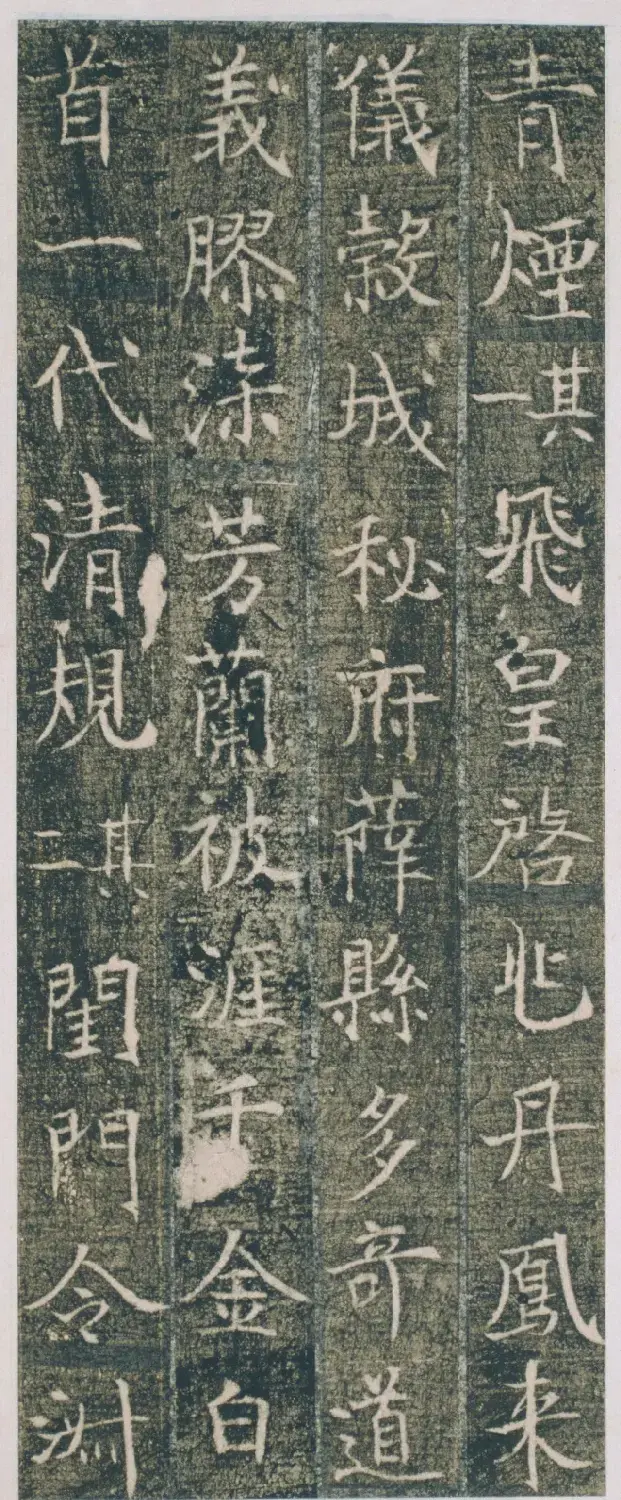 青煙其一飛皇啓兆丹鳳来
儀穀城秘府薛縣多奇道
義膠柒芳蘭被涯千金白
首一代清規其二閨門令淋